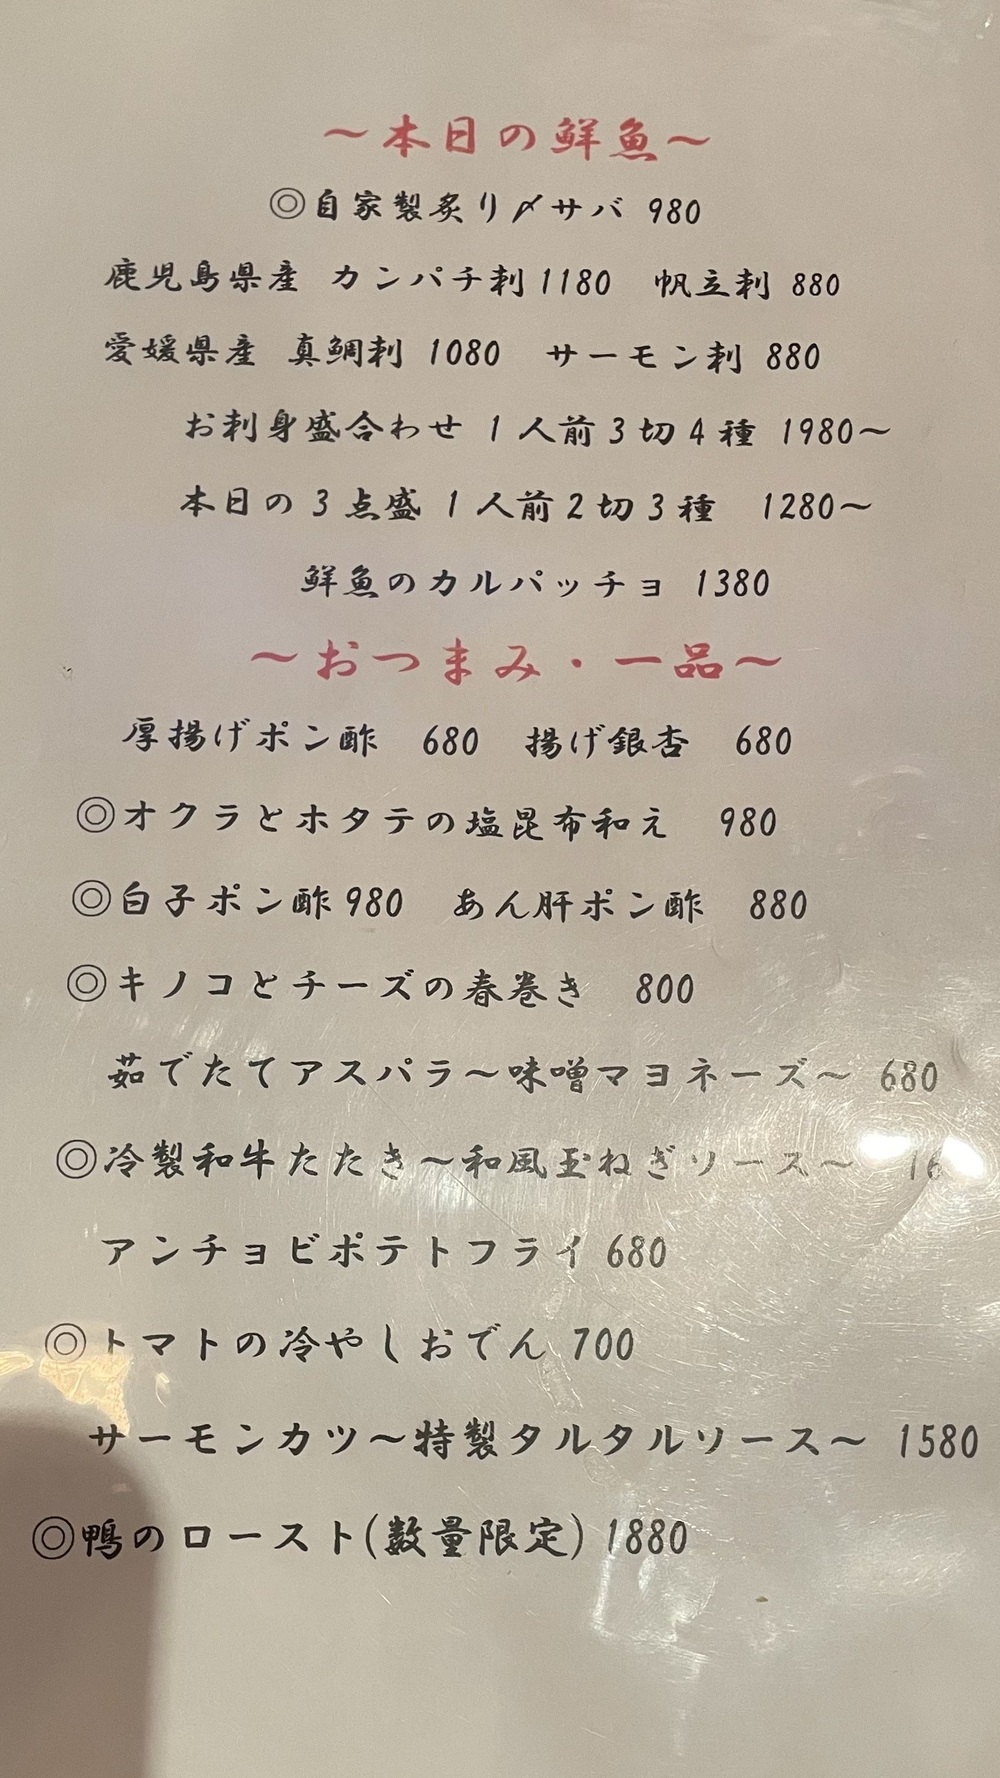 ～本日の鮮魚～
◎自家製炙り〆サバ 980
鹿児島県産 カンパチ刺 1180 帆立刺 880
愛媛県産 真鯛刺 1080 サーモン刺 880
お刺身盛合わせ 1人前3切4種 1980～
本日の3点盛 1人前2切3種 1280～
鮮魚のカルパッチョ 1380
～おつまみ・一品～
厚揚げポン酢 680 揚げ銀杏 680
◎オクラとホタテの塩昆布和え 980
◎白子ポン酢 980 あん肝ポン酢 880
◎キノコとチーズの春巻き 800
茹でたてアスパラ～味噌マヨネーズ～ 680
◎冷製和牛たたき～和風玉ねぎソース～
アンチョビポテトフライ 680
◎トマトの冷やしおでん 700
サーモンカツ～特製タルタルソース～ 1580
◎鴨のロースト(数量限定) 1880